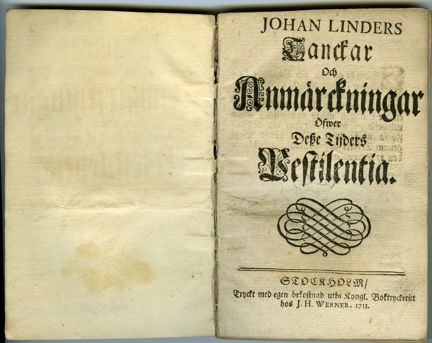 JOHAN LINDERS
Tanckar
Och
Anmärckningar
Öfwer
Deße Tijders
Pestilentia.
STOCKHOLM/
Tryckt med egen bekostnad uthi Kongl. Boktryckeriet
hos J. H. WERNER. 1711.